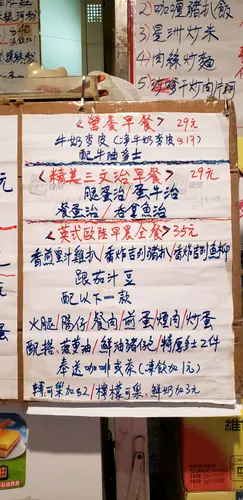 2) 咖喱豬扒飯
3) 星洲炒米
4) 肉絲炒麵
《營養早餐》 29元
牛奶麥皮 (淨牛奶麥皮
配牛油多士
《精美三文治早餐》 29元
腿蛋治 / 蛋牛治
餐蛋治 / 吞拿魚治
《英式歐陸早晨全餐》 35元
香煎黑汁雞扒 / 香炸吉列豬扒 / 香炸吉列魚柳
跟茄汁豆
配以下一款
火腿 / 腸仔 / 餐肉 / 煎蛋煙肉 / 炒蛋
配搭: 菠蘿油 / 鮮油豬仔包 / 特厚多士2件
奉送咖啡或茶 (凍飲加1元)
轉可樂加$2 / 檸檬可樂、鮮奶加3元